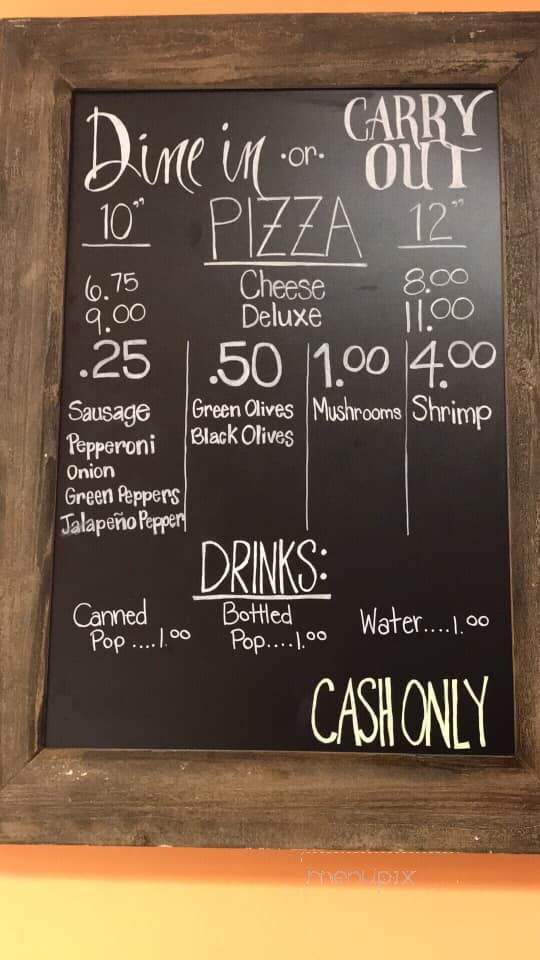 Dine in ·or· CARRY OUT
10" PIZZA 12"
6.75 Cheese 8.00
9.00 Deluxe 11.00
.25 .50 1.00 4.00
Sausage Green Olives Mushrooms Shrimp
Pepperoni Black Olives
Onion
Green Peppers
Jalapeño Pepper
DRINKS:
Canned Bottled Water....1.00
Pop ....1.00 Pop....1.00
CASH ONLY
menupix